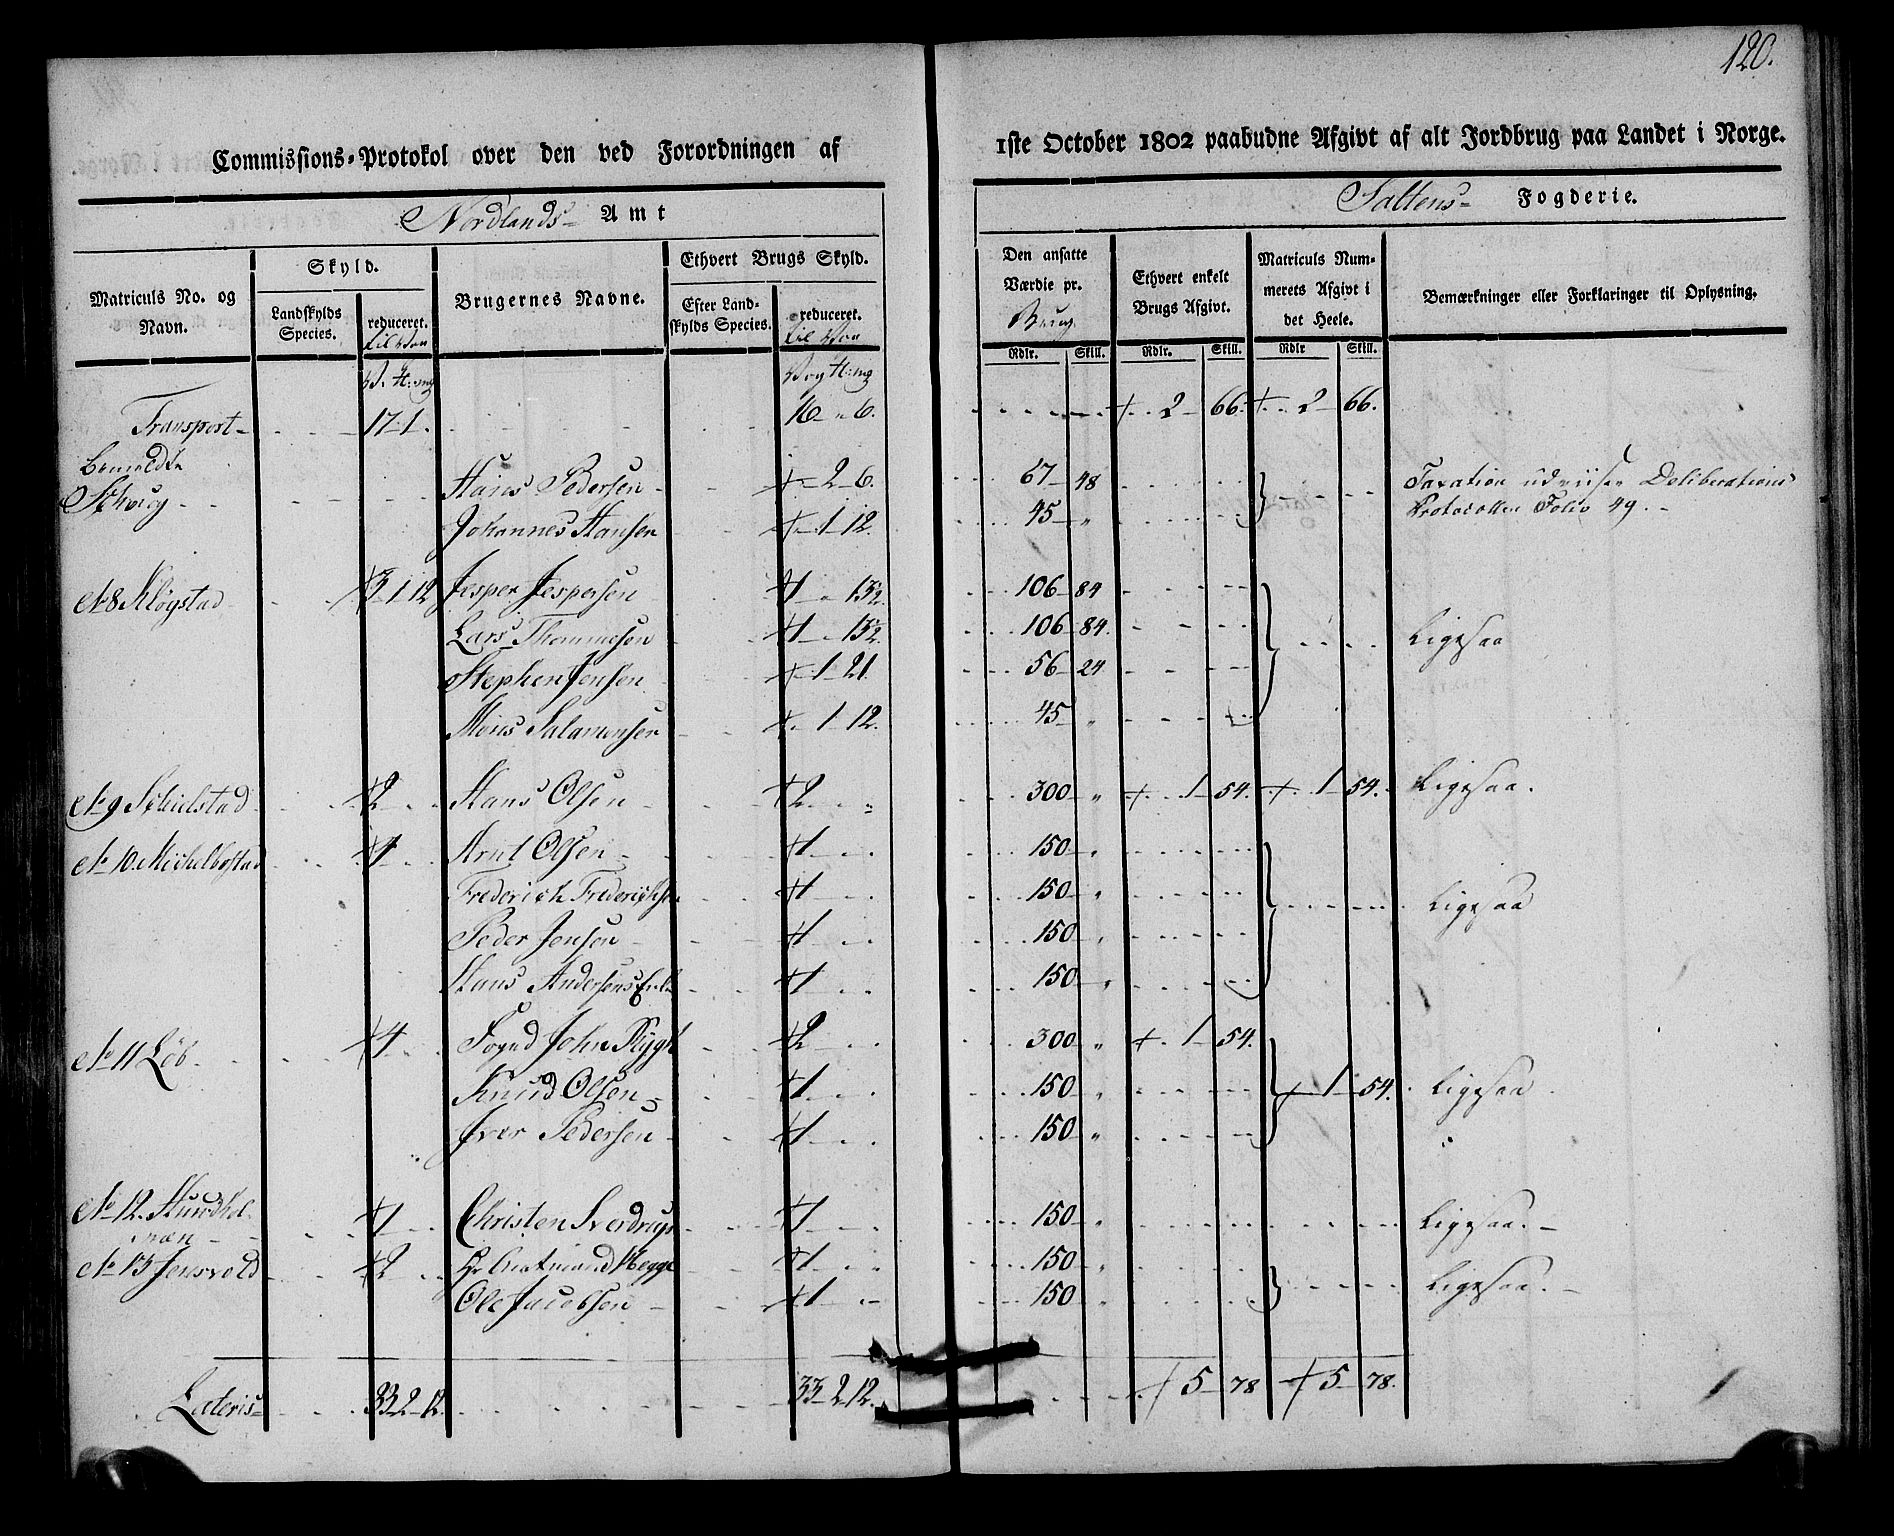 120.
Commissions-Protokol over den ved Forordningen af 1ste October 1802 paabudne Afgivt af alt Jordbrug paa Landet i Norge.
Nordlands- Amt Saltens- Fogderie.
Matriculs No. og Navn. Skyld. Brugernes Navne. Ethvert Brugs Skyld. Den ansatte Værdie pr. Brug Ethvert enkelt Brugs Afgivt. Matriculs Nummerets Afgivt i det Heele. Bemærkninger eller Forklaringer til Oplysning.
Landskylds Species. reduceret. til Vog Efter Landskylds Species. reduceret. til Vog
Rdlr. Skill. Rdlr. Skill. Rdlr Skill.
V. ℔: mg Vog ℔: mg
Transport- 17-1. 16-"6. 2-66. 2-66.
bemeldte
Schoug Hans Pedersen 2-6. 67-48 Taxation udviiser Deliberations
Johannes Hansen 1-12. 45-" Protocollen Folio 49.-
No 8 Kløgstad 3-1-12 Jesper Jespersen 1-"13½ 106-84
Lars Thommesen 1-"13½ 106-84. Ligesaa
Stephen Jensen 1-21. 56-24
Mons Salamonsen 1-12. 45-"
No 9 Schielstad 2 Hans Olsen 2 " 300-" 1-54. 1-54. Ligesaa.
No 10. Michelbostad 4 Arnt Olsen 1 150-"
Frederich Frederichsen 1 150-" Ligesaa
Peder Jensen 1 150-"
Hans Andersens Enke 1 150-"
No 11 Løb 4 Foged John Rygh 2 300-" 1-54.
Knud Olsen 1 150-" 1-54. Ligesaa
Iver Pedersen 1 150-" "
No 12. Hundhol-
mæn 1 Christen Sverdrups 1 150-" Ligesaa.-
No 13 Jensvold 2 Hr Amtmand Hegge 1 150-"
Ole Jacobsen 1 150-" Ligesaa.-
Lateris 33-2-12. 33-2-12. 5-78 5-78.